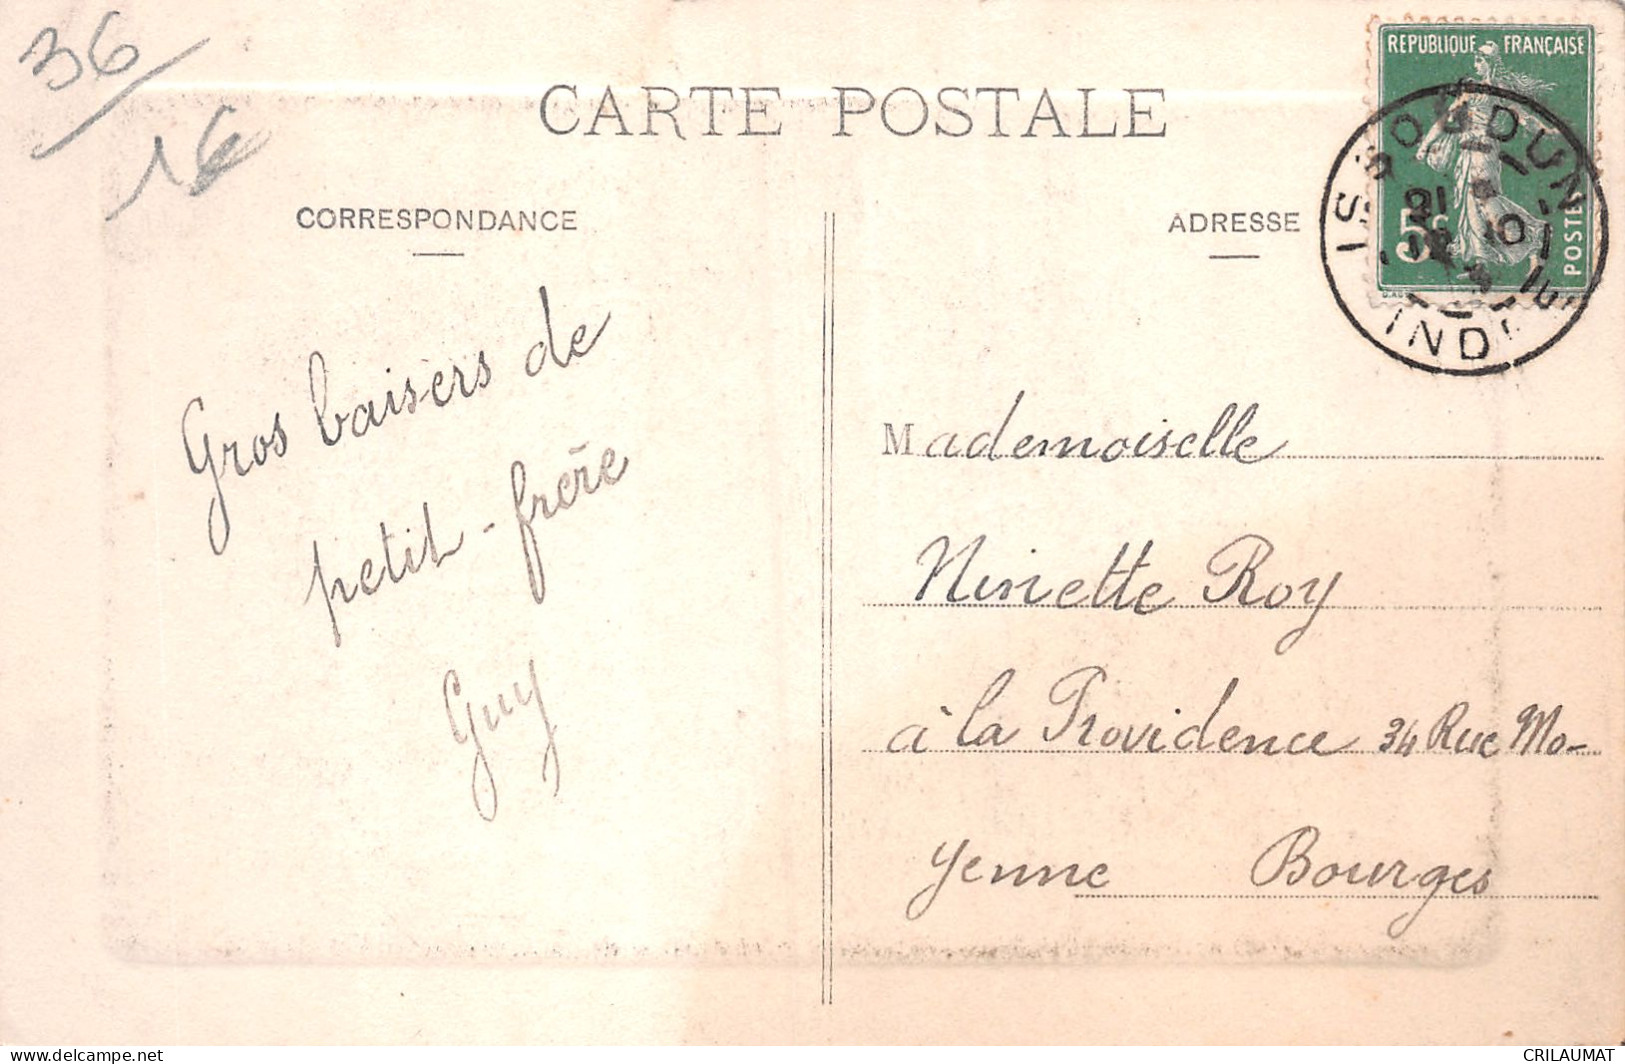 36
16
CARTE POSTALE
REPUBLIQUE FRANÇAISE
5c
POSTES
ISSOUDUN
CORRESPONDANCE
ADRESSE
Gros baisers de
petit-frère
Guy
Mademoiselle
Ninette Roy
à la Providence 34 Rue Mo-
yenne Bourges
delcampe.net
CRILAUMAT